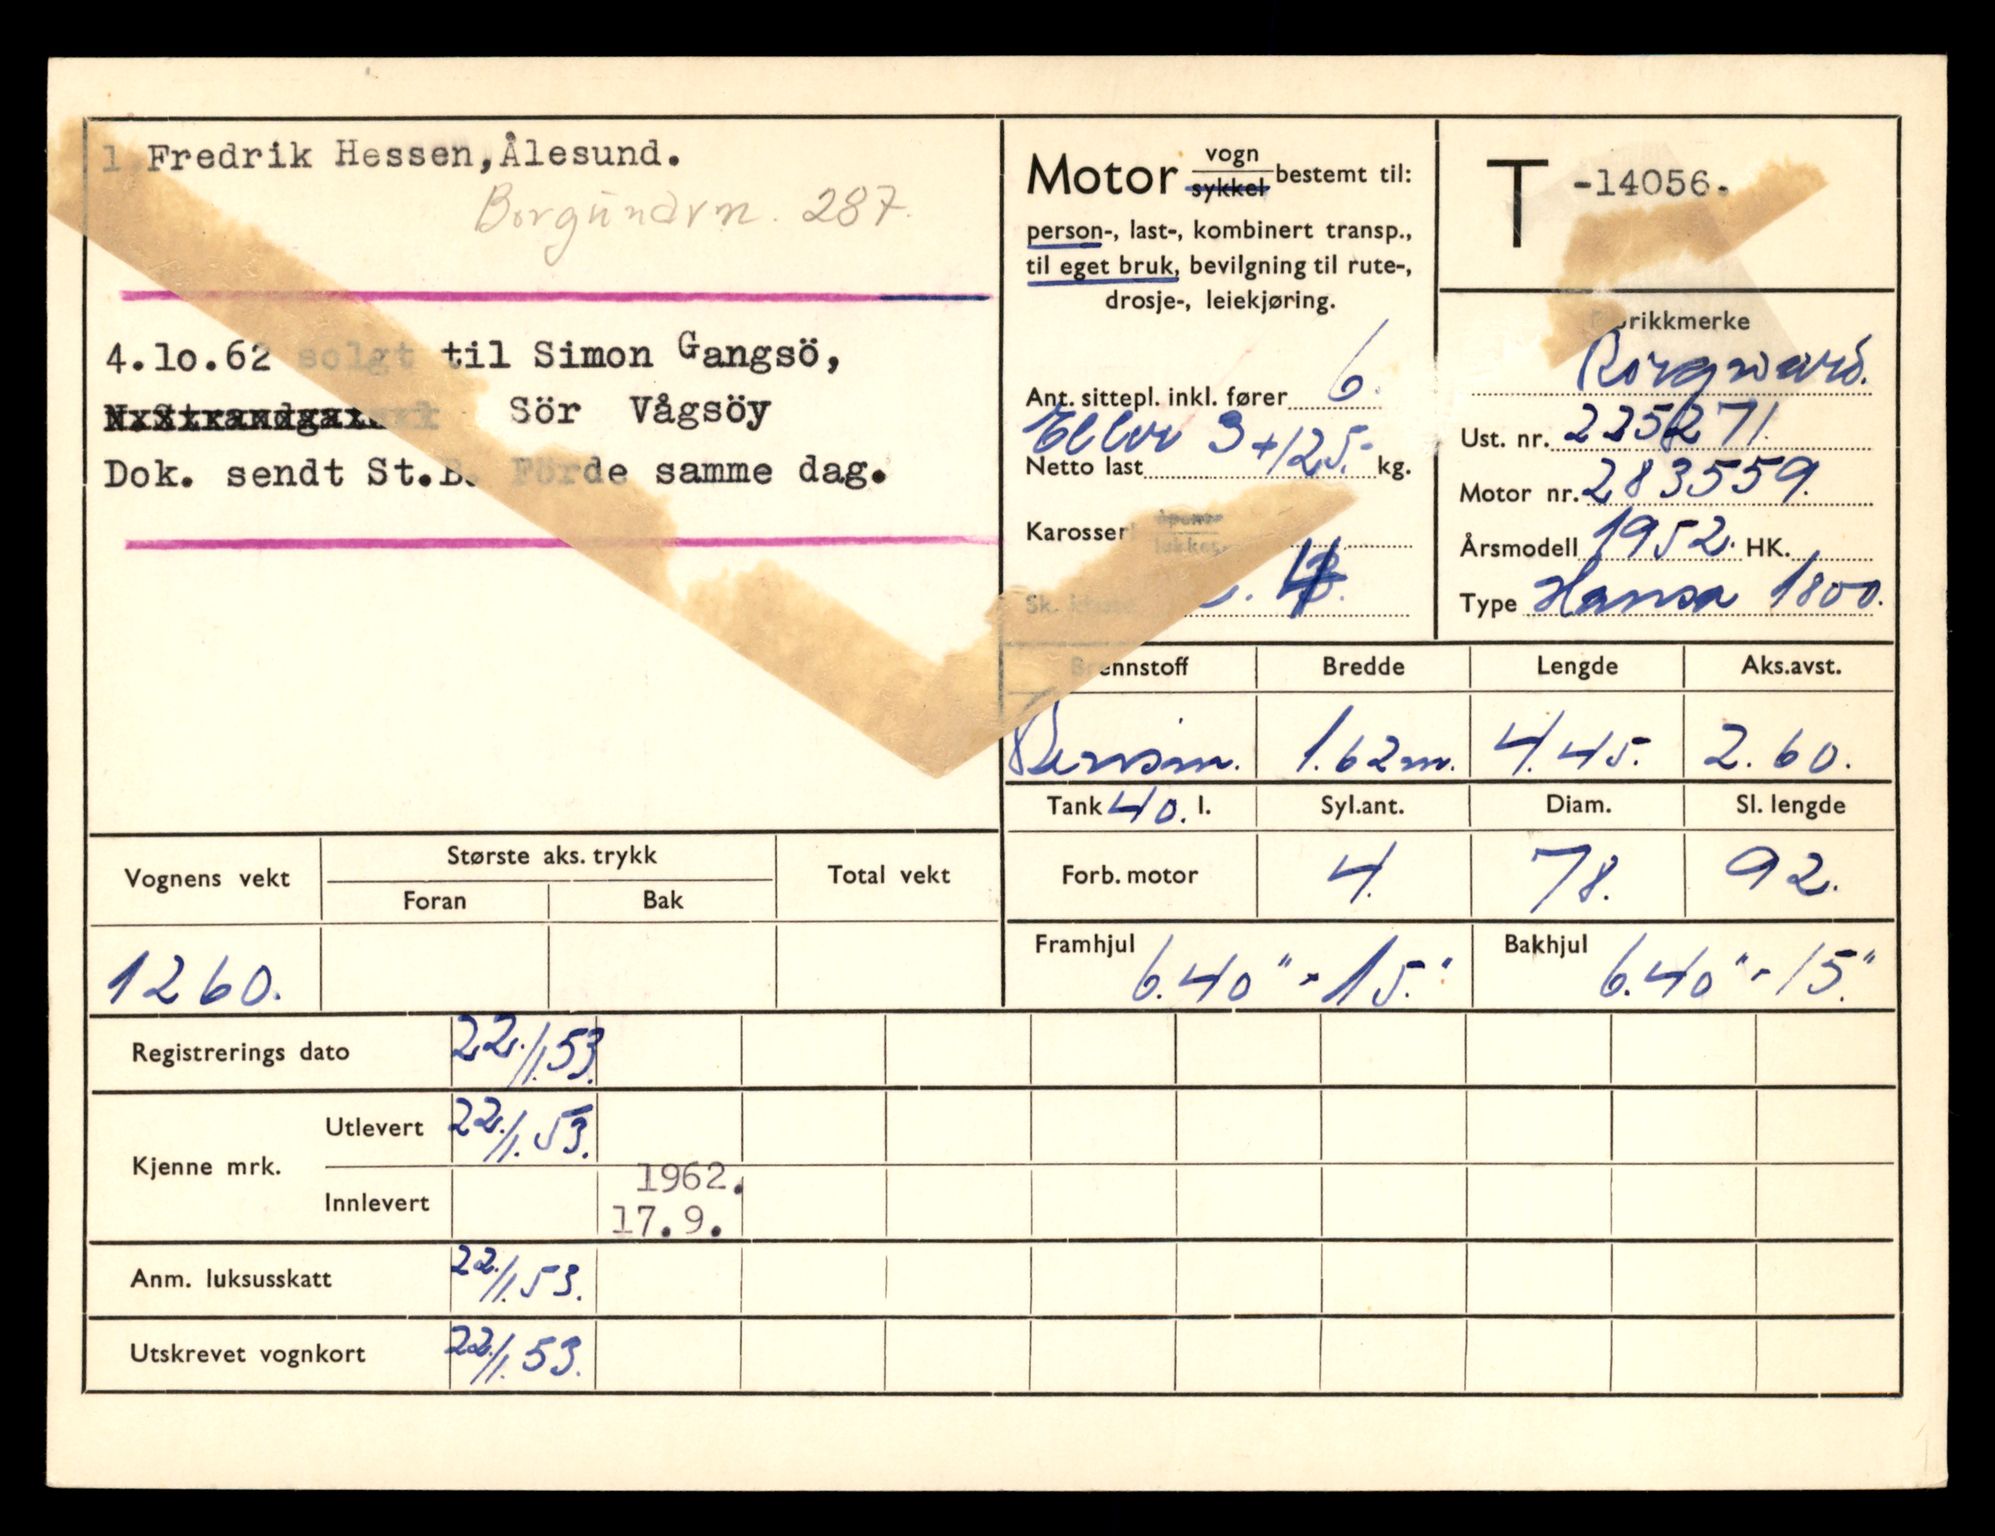 1. Fredrik Hessen, Ålesund.
Borgundvn. 287.
4.10.62 solgt til Simon Gangsö,
Sör Vågsöy
Dok. sendt St.B. Förde samme dag.
Motor vogn
sykkel
bestemt til:
person-, last-, kombinert transp.,
til eget bruk, bevilgning til rute-,
drosje-, leiekjøring.
Ant. sittepl. inkl. fører 6.
Eller 3 + 125.-
Netto last kg.
Karosseri åpent
lukket
Sk. klasse
T -14056.
Fabrikkmerke
Borgward.
Ust. nr. 225271.
Motor nr. 283559.
Årsmodell 1952. HK.
Type Hansa 1800.
Brennstoff Bredde Lengde Aks.avst.
Bensin. 1.62 m. 4.45. 2.60.
Tank 40. l. Syl.ant. Diam. Sl. lengde
Forb. motor 4. 78. 92.
Framhjul 6.40" - 15." Bakhjul 6.40" - 15"
Vognens vekt Største aks. trykk Total vekt
Foran Bak
1260.
Registrerings dato 22./1.53.
Kjenne mrk. Utlevert 22./1.53.
Innlevert 1962.
17.9.
Anm. luksusskatt 22./1.53.
Utskrevet vognkort 22./1.53.